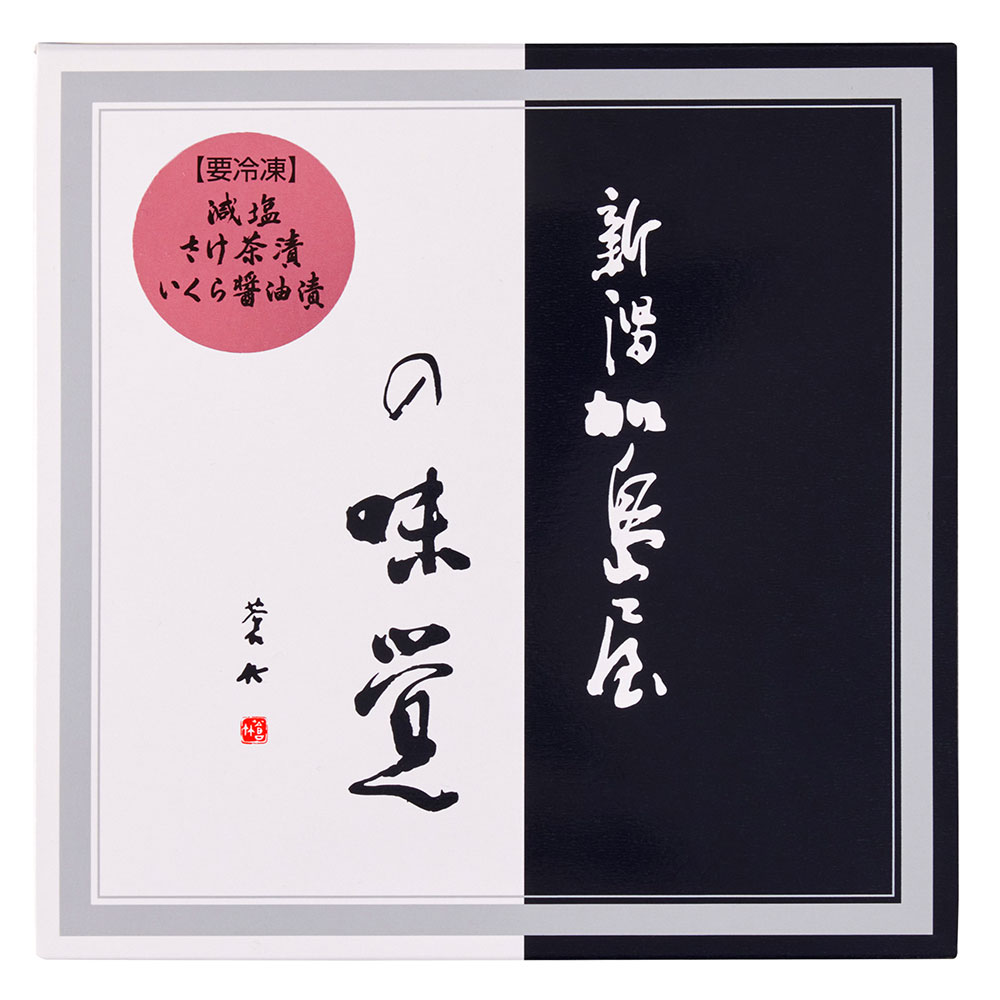 新潟加島屋
の味覚
【要冷凍】
減塩
さけ茶漬
いくら醤油漬